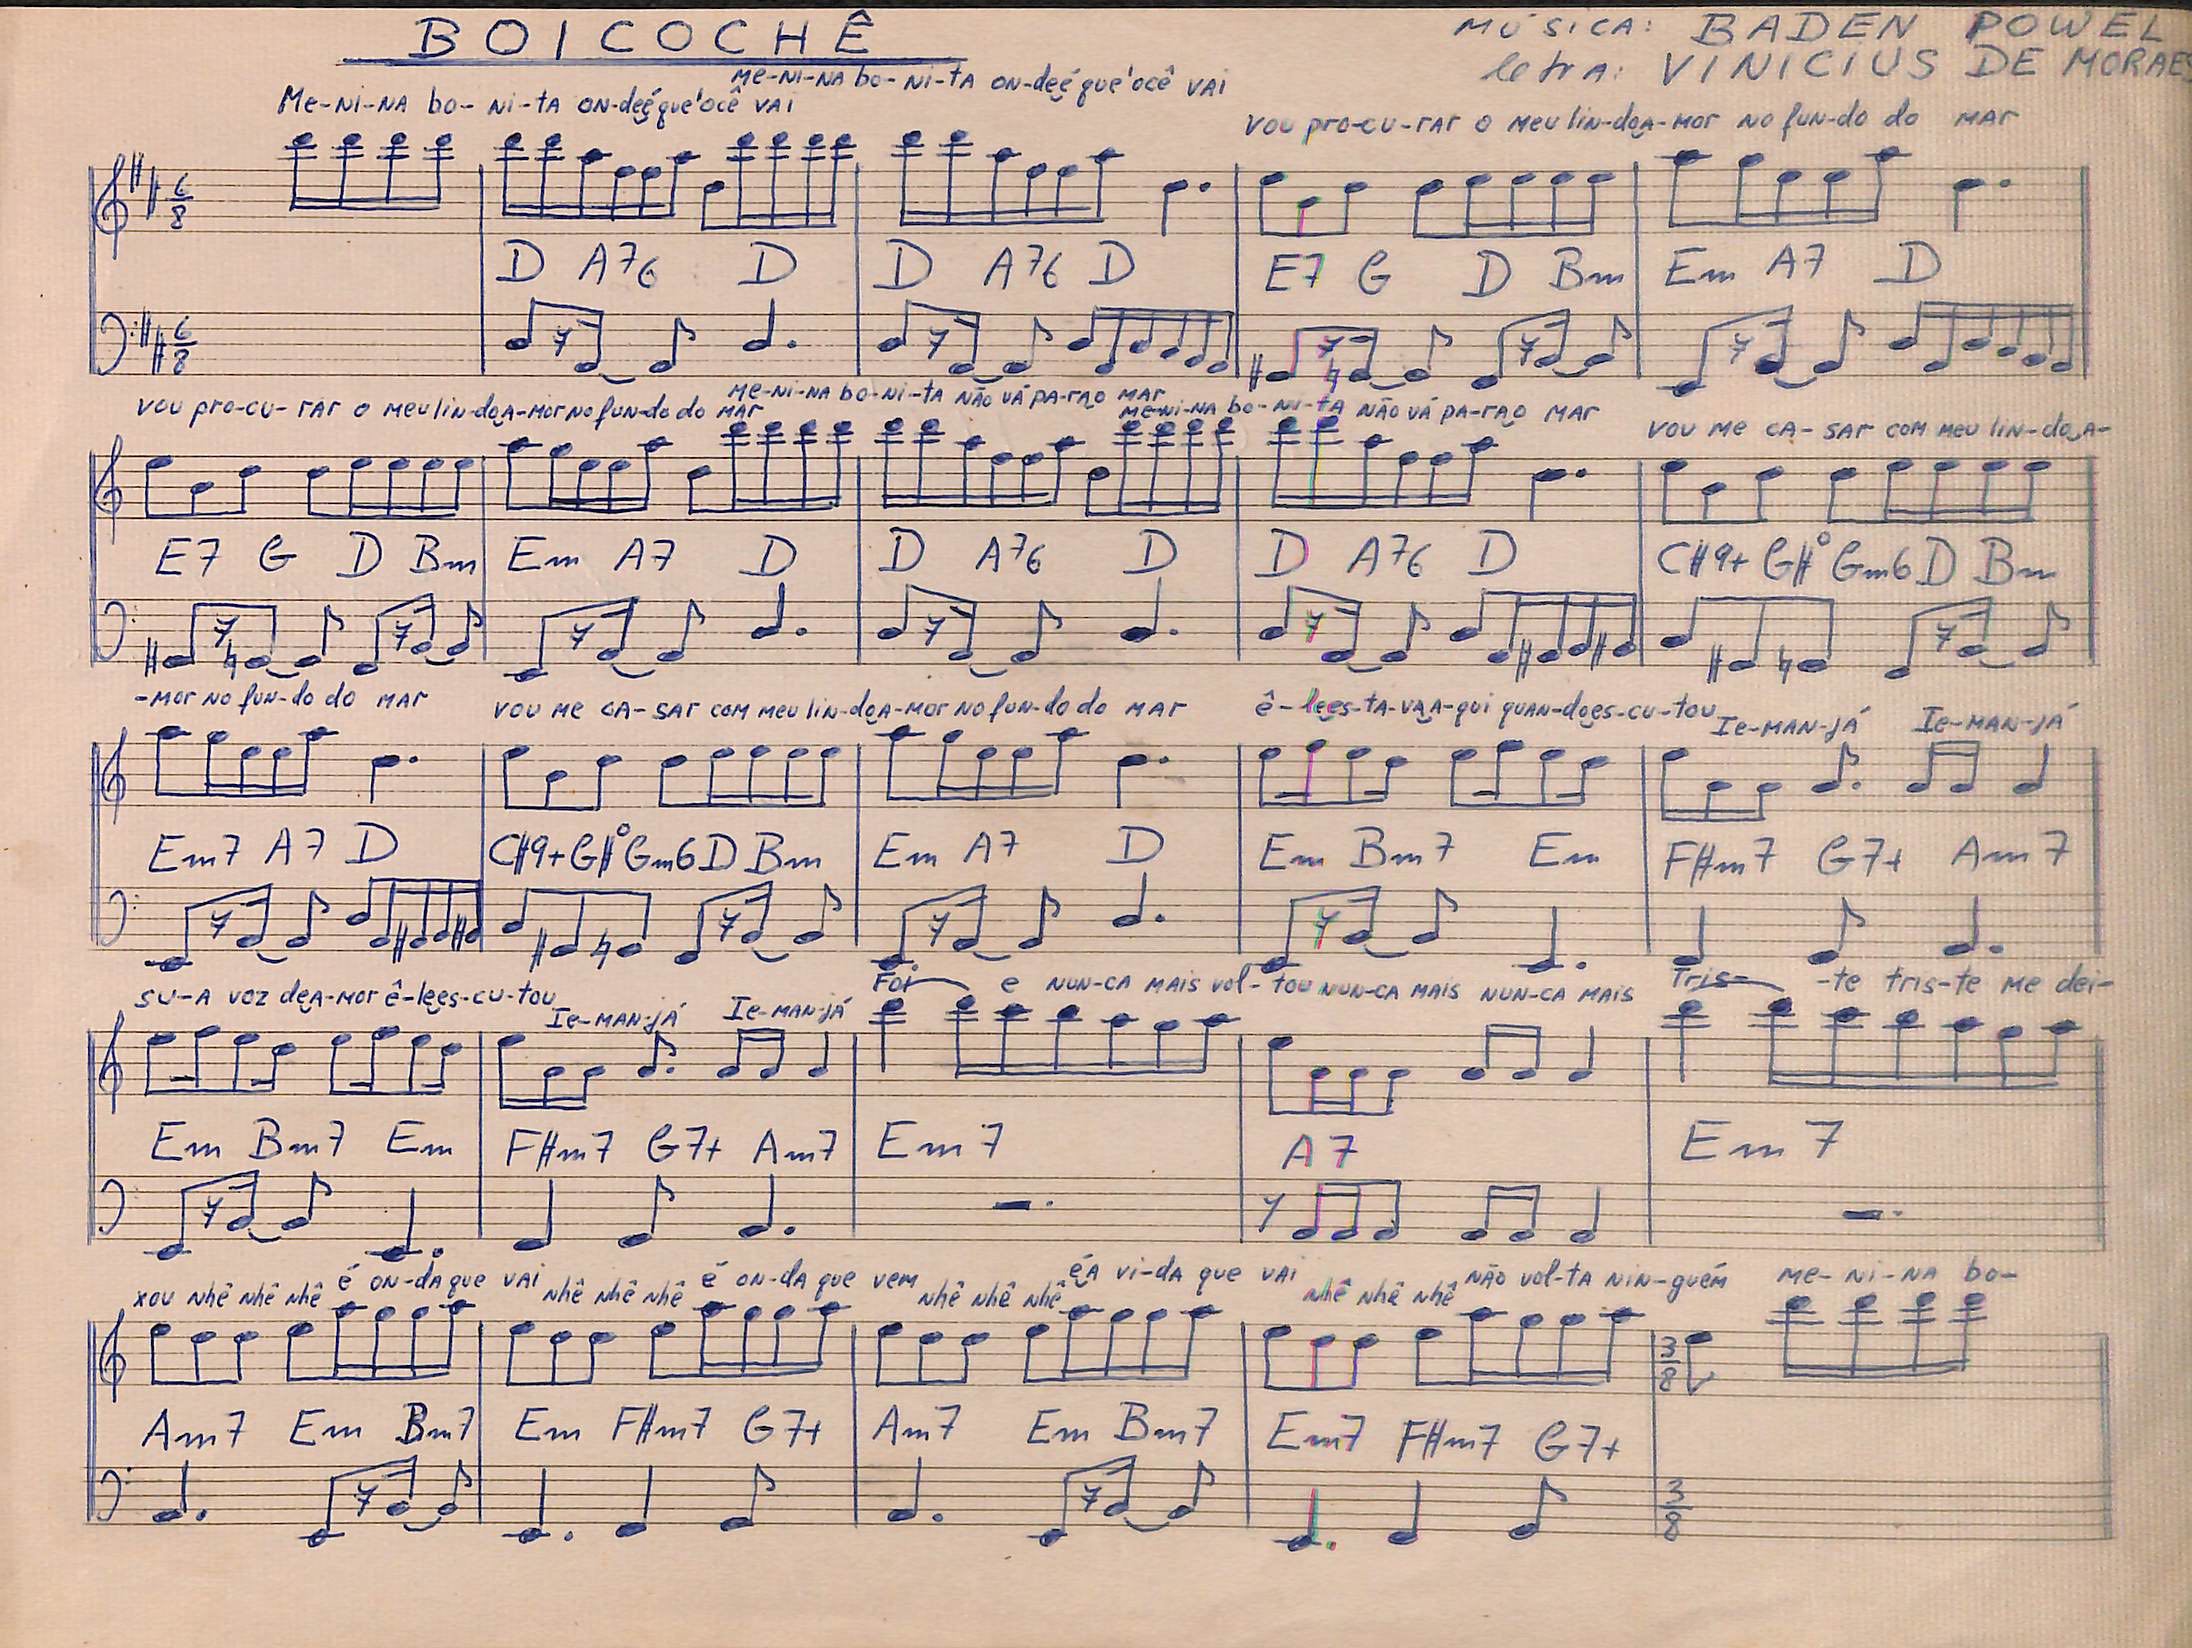 BOICOCHÊ
MÚSICA: BADEN POWEL
letra: VINICIUS DE MORAES
Me-NI-NA bo-NI-tA ON-deéque'ocê VAI
Me-NI-NA bo-NI-tA ON-deéque'ocê VAI
VOU pro-cu-rAr o meu lin-doA-Mor No fuN-do do MAr
6/8
D A76 D D A76 D E7 G D Bm Em A7 D
6/8
VOU pro-cu-rAr o meu lin-doA-Mor No fuN-do do MAr
Me-NI-NA bo-NI-tA NÃO VÁ PA-rAO MAr
Me-NI-NA bo-NI-tA NÃO VÁ PA-rAO MAr
VOU Me CA-SAr COM Meu lIN-doA-
E7 G D Bm Em A7 D D A76 D D A76 D C#9+ G#° Gm6 D Bm
-Mor NO fuN-do do MAr
VOU Me CA-SAr COM Meu lIN-doA-Mor NO fuN-do do MAr
ê-lees-TA-VAA-qui quAN-does-cu-tou
Ie-MAN-JÁ Ie-MAN-JÁ
Em7 A7 D C#9+ G#° Gm6 D Bm Em A7 D Em Bm7 Em F#m7 G7+ Am7
SU-A VOZ deA-Mor ê-lees-cu-tou
Ie-MAN-JÁ Ie-MAN-JÁ
Foi e NUN-CA MAIS Vol-tou NUN-CA MAIS NUN-CA MAIS
Tris- -te tris-te Me dei-
Em Bm7 Em F#m7 G7+ Am7 Em7 A7 Em7
xou Nhê Nhê Nhê é ON-dA que VAI Nhê Nhê Nhê é ON-dA que VeM Nhê Nhê Nhê éA VI-dA que VAI Nhê Nhê Nhê NÃO Vol-tA NIN-guéM Me-NI-NA bo-
3/8
Am7 Em Bm7 Em F#m7 G7+ Am7 Em Bm7 Em7 F#m7 G7+
3/8